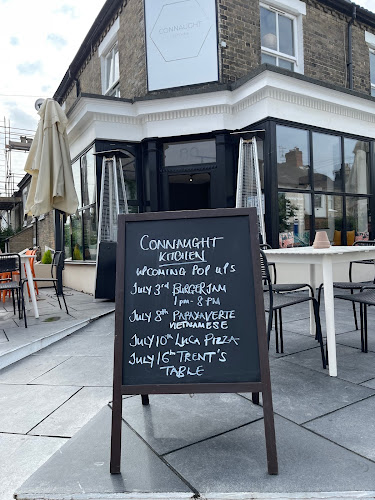 CONNAUGHT
CONNAUGHT
KITCHEN
UPCOMING POP UPS
JULY 3RD BURGERJAM
1PM - 8PM
JULY 8TH PAPAYAVERTE
VIETNAMESE
JULY 10TH LUCA PIZZA
JULY 16TH TRENT'S
TABLE